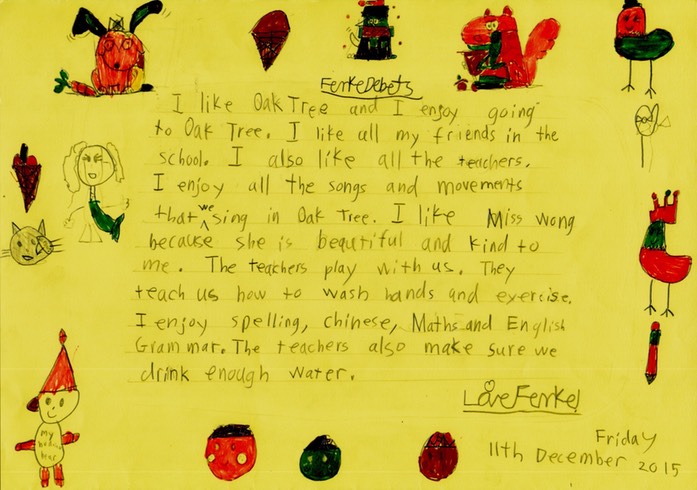 Femke Debets
I like Oak Tree and I enjoy going
to Oak Tree. I like all my friends in the
school. I also like all the teachers.
I enjoy all the songs and movements
that we sing in Oak Tree. I like Miss Wong
because she is beautiful and kind to
me. The teachers play with us. They
teach us how to wash hands and exercise.
I enjoy spelling, chinese, Maths and English
Grammar. The teachers also make sure we
drink enough water.
Love Femke
Friday
11th December 2015
My